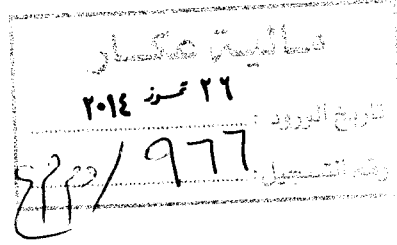 مالية عكار
٢٦ تموز ٢٠١٤
تاريخ الورود :
رقم التسجيل: ٩٦٦ /